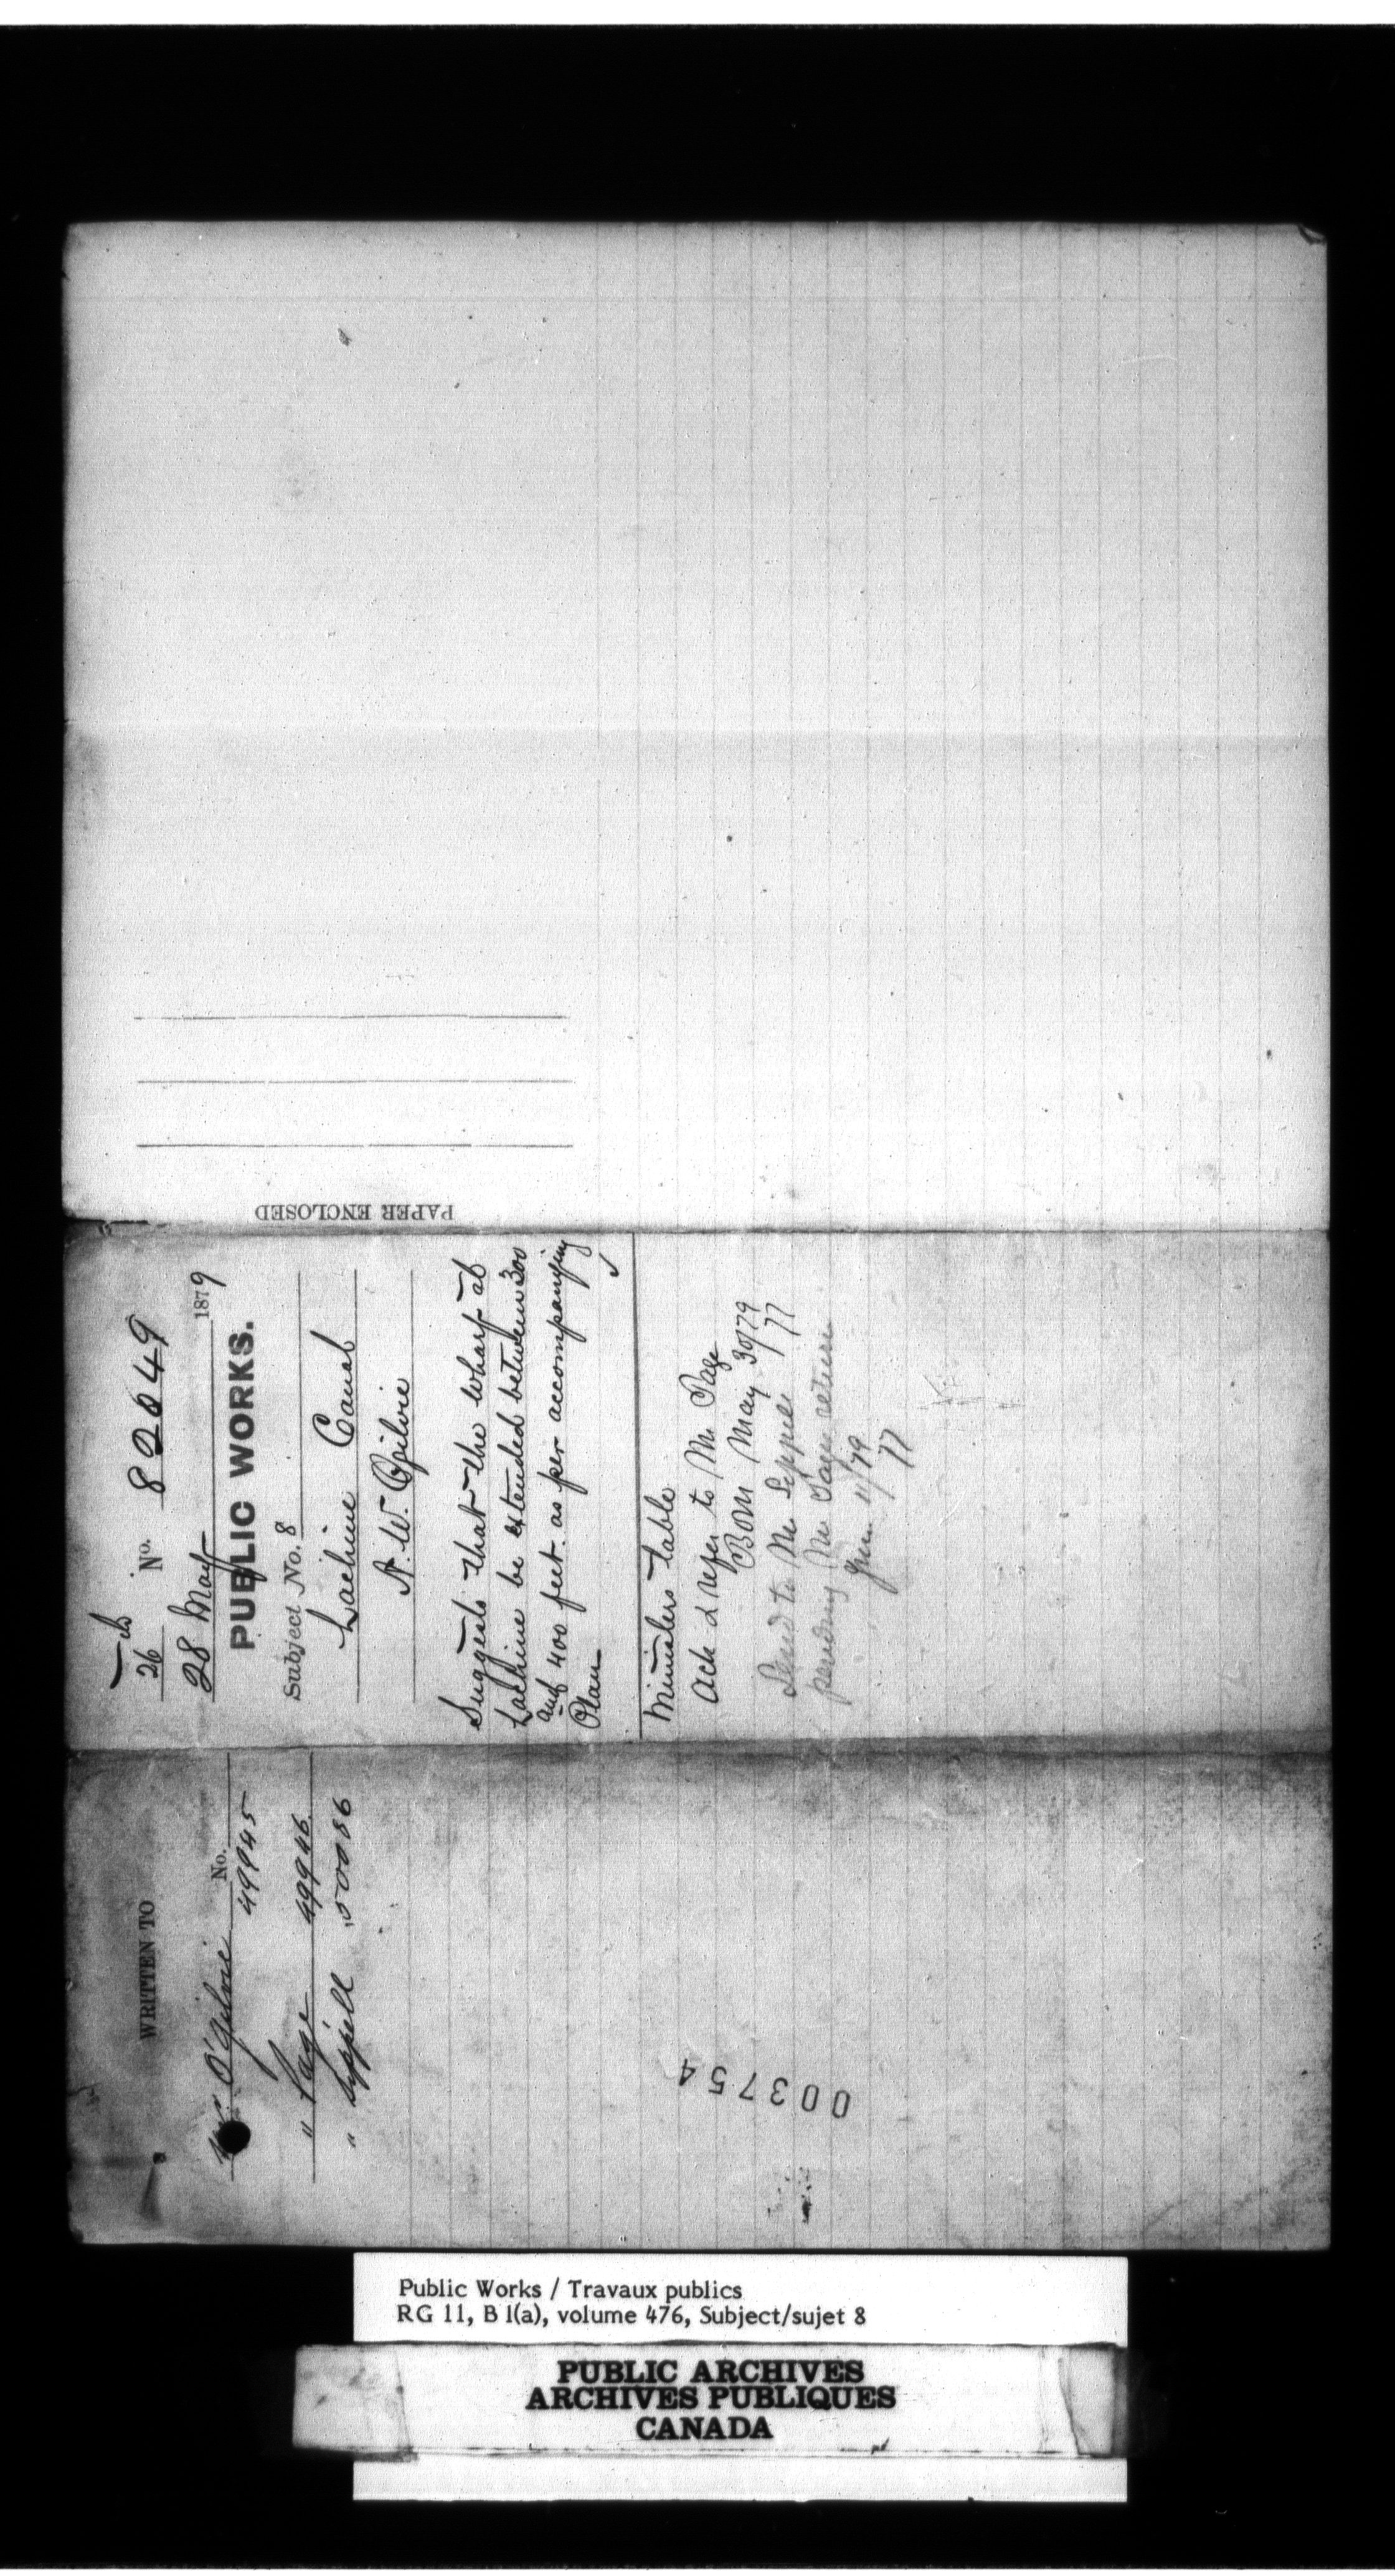 PAPER ENCLOSED
26 No. 82049
28 May 1879
PUBLIC WORKS.
Subject No. 8
Lachine Canal
A. W. Ogilvie
Suggests that the wharf at
Lachine be extended between 300
and 400 feet. as per accompanying
Plan
Ministers table
Ack & refer to Mr Page
May 30/79
Send to Mr Sippell
pending Mr Page return
11/79
WRITTEN TO
No.
Mr O'Gilvie 49945
" Page 49946
" Sippell 50086
003754
Public Works / Travaux publics
RG 11, B 1(a), volume 476, Subject/sujet 8
PUBLIC ARCHIVES
ARCHIVES PUBLIQUES
CANADA